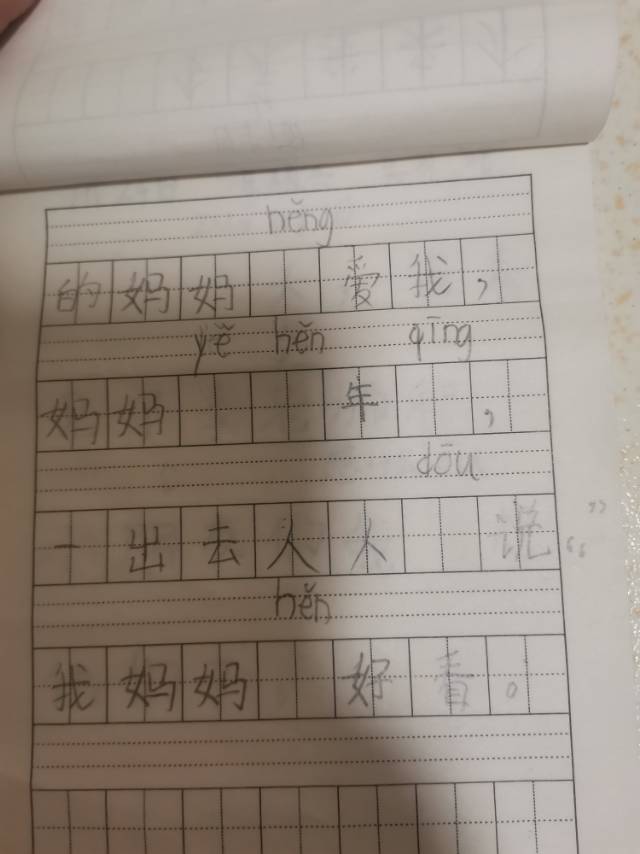 hěng
的妈妈 爱我，
yě hěn qīng
妈妈 年 ，
dōu
一出去人人 说“”
hěn
我妈妈 好看。